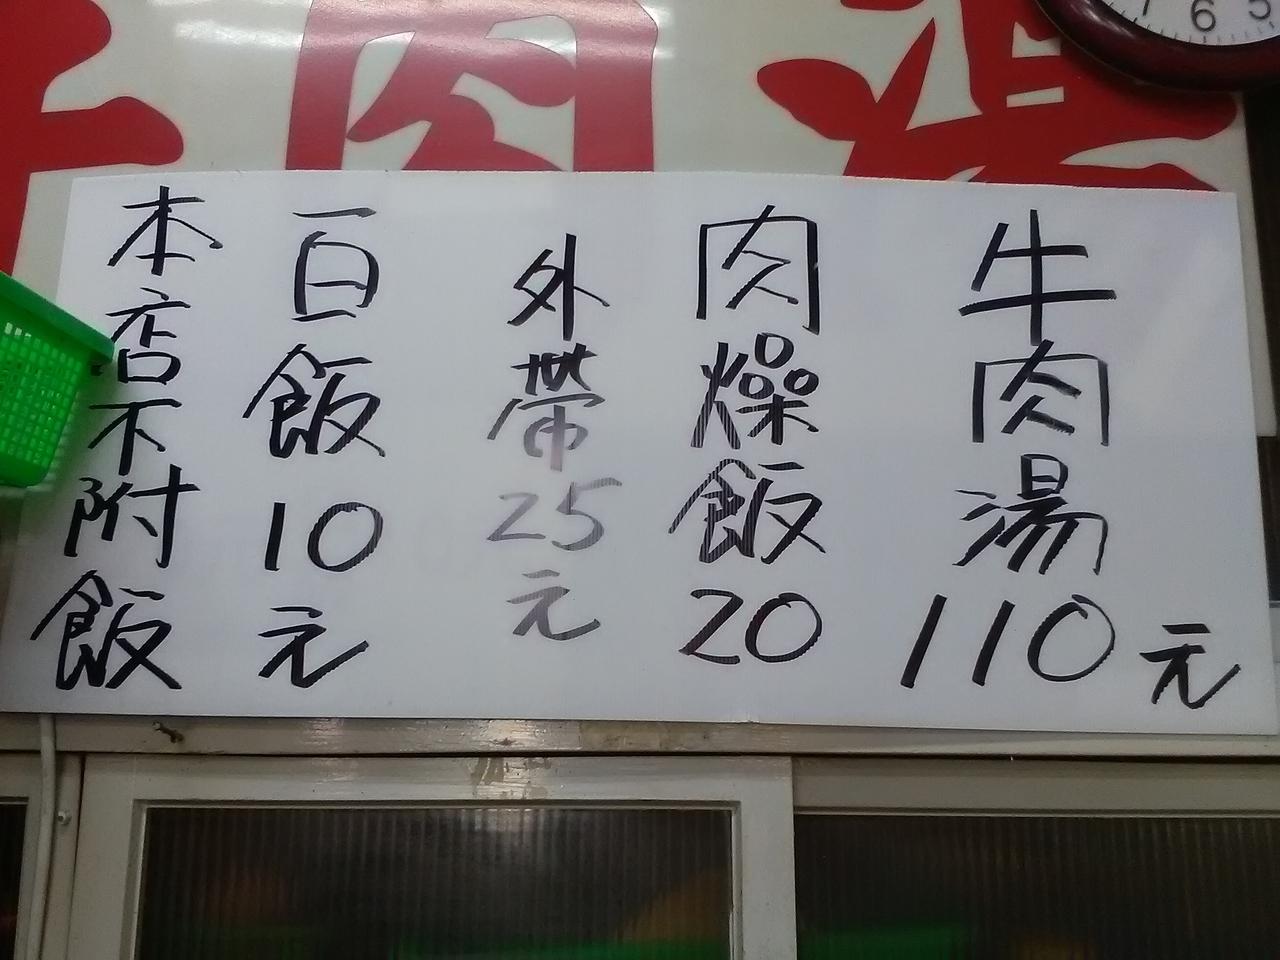 牛肉湯110元
肉燥飯20
外帶25元
百飯10元
本店不附飯
肉湯
6 5